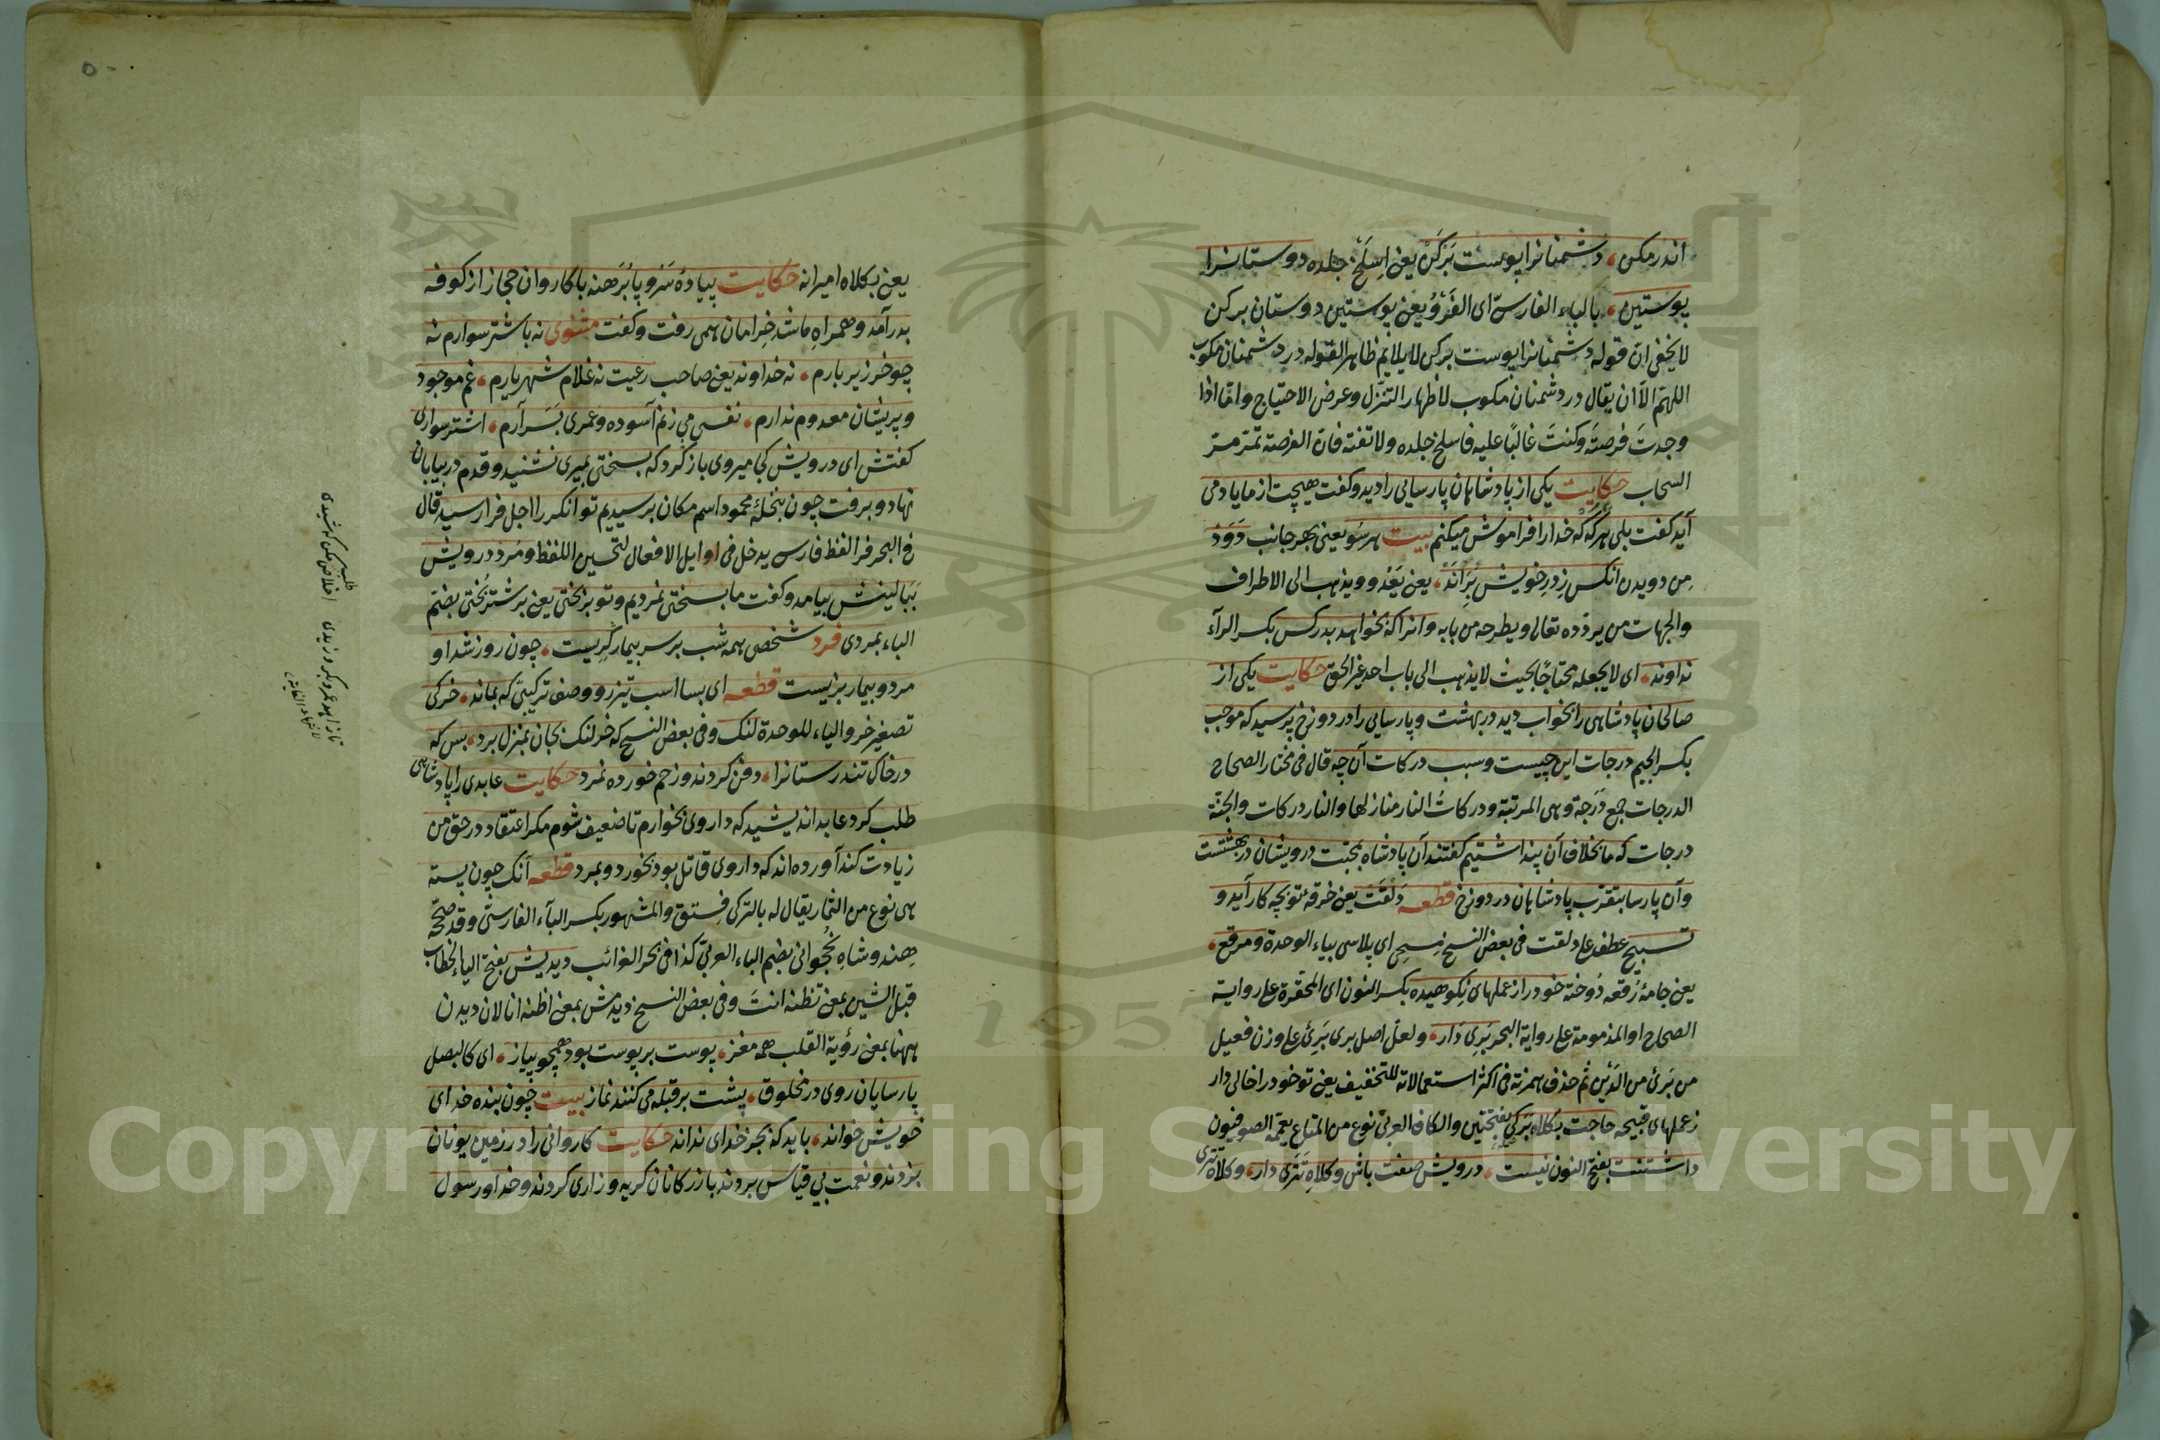 اندر مکن، دشمنانرا پوست برکن یعنی اسلخ جلده دوستانرا
پوستین، بالباء الفارسی ای الفرو یعنی پوستین دوستان برکن
لا یخفی ان قوله دشمنانرا پوست برکن لا یلایم ظاهر القوله در دشمنان مکوب
اللهم الا ان یقال در دشمنان مکوب لاظهار التنزل وعرض الاحتیاج واما اذا
وجدت فرصة وکنت غالبا علیه فاسلخ جلده ولا تفته فان الفرصة تمر مر
السحاب حکایت یکی از پادشاهان پارسایی را دید و کفت هیچت از ما یاد می
آید کفت بلی هرکه که خدا را فراموش میکنم بیت هر سو یعنی بهر جانب دود
من دویدن انکس ز در خویش براند، یعنی یعدو ویذهب الی الاطراف
والجهات من یرده تعالی ویطرحه من بابه وانرا که بخواند بدر کس بکسر الراء
نداوند، ای لا یجعله محتاجا بحیث لا یذهب الی باب احد غیر الحق حکایت یکی از
صالحان پادشاهی را بخواب دید در بهشت و پارسایی را در دوزخ پرسید که موجب
بکسر الجیم درجات این چیست و سبب درکات آن چه قال فی مختار الصحاح
الدرجات جمع درجة وهی المرتبة ودرکات النار منازلها والنار درکات والجنة
درجات که ما بخلاف آن پنداشتیم کفتند آن پادشاه بمحبت درویشان در بهشتست
و آن پارسا بتقرب پادشاهان در دوزخ قطعه دلقت یعنی خرقه تو بچه کار آید و
تسبیح عطف علی دلقت فی بعض النسخ ای پلاسی بیاء الوحدة ومرقع،
یعنی جامه رقعه دوخته خود را از عملهای نکوهیده بکسر النون ای المحقرة علی روایة
الصحاح او المذمومة علی روایة البحر بری دار، ولعل اصل بری بریء علی وزن فعیل
من برئ من الدین ثم حذف همزته فی اکثر استعمالاته للتخفیف یعنی تو خود را خالی دار
ز عملهای قبیحه حاجت بکلاه برکی بفتحتین والکاف العربی نوع من المتاع یعممه الصوفیون
داشتنت بفتح النون نیست، درویش صفت باش و کلاه تتری دار، و کلاه تتری
یعنی بکلاه امیرانه حکایت پیاده سر و پا برهنه با کاروان حجاز از کوفه
بدر آمد و همراه ما شد خرامان همی رفت و کفت مثنوی نه باشتر سوارم نه
چو خر زیر بارم، نه خداوند یعنی صاحب رعیت نه غلام شهریارم، غم موجود
و پریشان معدوم ندارم، نفسی می زنم آسوده و عمری بسر آرم، اشتر سواری
کفتش ای درویش کجا میروی باز کرد که بسختی بمیری نشنید و قدم در بیابان
نهاد و برفت چون بنخلهٔ محمود اسم مکان برسیدیم توانکر را اجل فرا رسید قال
فی البحر فرا لفظ فارسی یدخل فی اوایل الافعال لتحسین اللفظ و مرد درویش
ببالینش بیامد و کفت ما بسختی نمردیم و تو بر بختی یعنی بر شتر بختی بضم
الباء بمردی فرد شخصی همه شب بر سر بیمار کریست، چون روز شد او
مرد و بیمار بزیست قطعه ای بسا اسب تیزرو وصف ترکیبی که بماند، خرکی
تصغیر خر والیاء للوحدة لنک وفی بعض النسخ که خر لنک بجان بمنزل برد، بس که
در خاک تندرستانرا، دفن کردند و زخم خورده نمرد حکایت عابدی را پادشاهی
طلب کرد عابد اندیشید که داروی بخوارم تا ضعیف شوم مکر اعتقاد در حق من
زیادت کند آورده اند که داروی قاتل بود بخورد و بمرد قطعه آنک چون پسته
هی نوع من الثمار یقال له بالترکی فستق والمشهور بکسر الباء الفارسی وقد صححه
هندوشاه نخجوانی بضم الباء العربی کذا فی بحر الغرائب دیدیش بفتح الیاء لخطاب
قبل الشین بمعنی تظنه انت وفی بعض النسخ دیدمش بمعنی اظنه انا لان دیدن
ههنا بمعنی رؤیة القلب همه مغز، پوست بر پوست بود همچو پیاز، ای کالبصل
پارسایان روی در مخلوق، پشت بر قبله می کنند نماز بیت چون بنده خدای
خویش خواند، باید که بجز خدای نداند حکایت کاروانی را در زمین یونان
بزدند و نعمت بی قیاس بردند بازرکانان کریه و زاری کردند و خدا و رسول